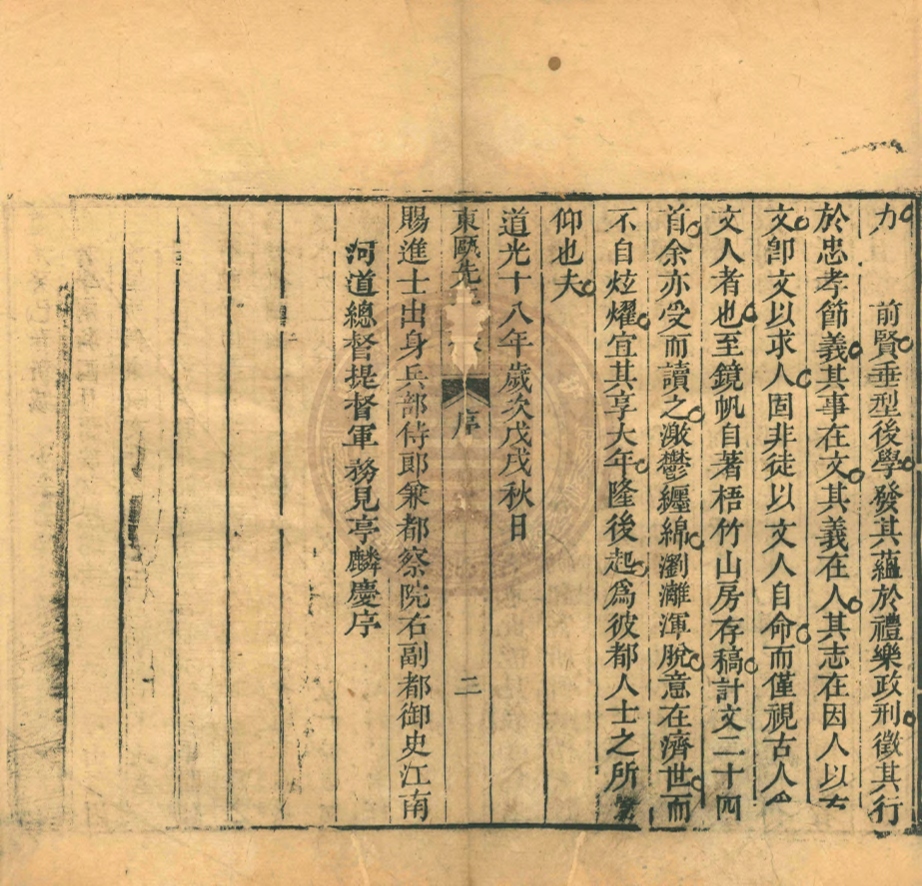 力 前賢垂型後學發其蘊於禮樂政刑徵其行
於忠孝節義其事在文其義在人其志在因人以
文卽文以求人固非徒以文人自命而僅視古人
文人者也至鏡帆自著梧竹山房存稿計文二十四
首余亦受而讀之激鬱纏綿瀏灕渾脫意在濟世而
不自炫燿宜其享大年隆後起爲彼都人士之所
仰也夫
道光十八年歲次戊戌秋日
東甌先 序 二
賜進士出身兵部侍郎兼都察院右副都御史江南
河道總督提督軍務見亭麟慶序